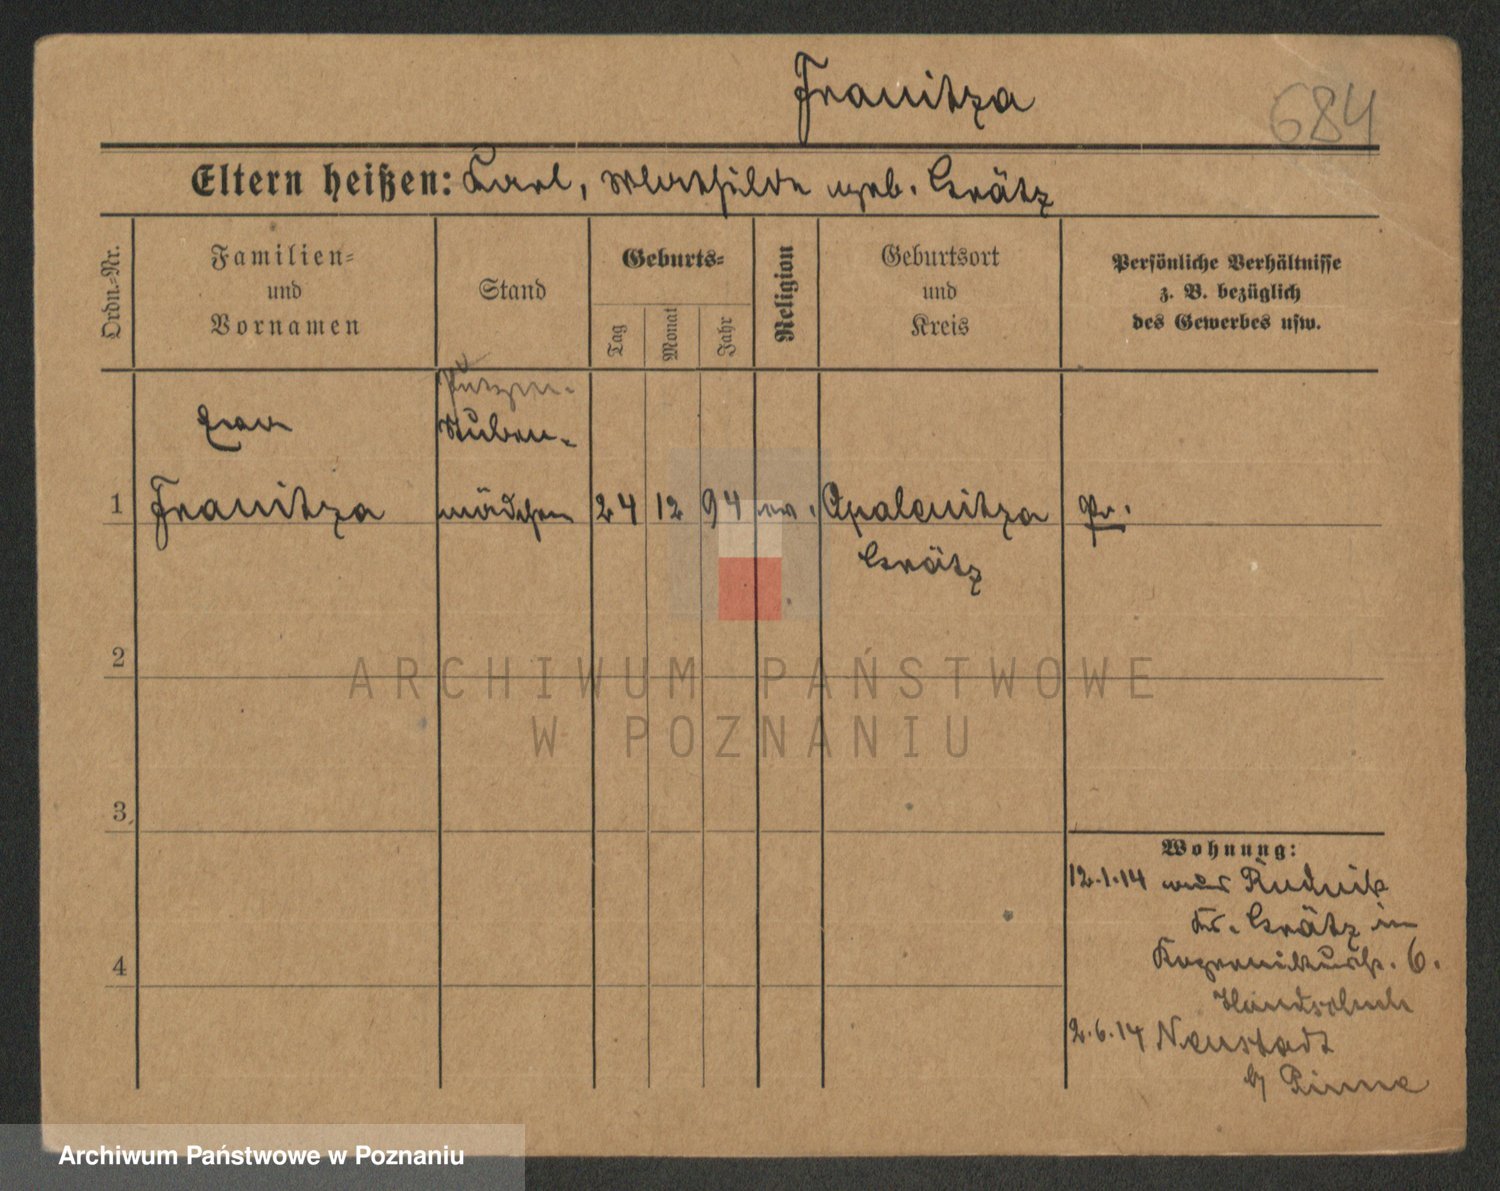 Franitza
684
Eltern heißen: Karl, Mathilde geb. Grätz
Ordn.-Nr.
Familien-
und
Vornamen
Stand
Geburts-
Tag
Monat
Jahr
Religion
Geburtsort
und
Kreis
Persönliche Verhältnisse
z. B. bezüglich
des Gewerbes usw.
Stuben-
1 Franitza mädchen 24 12 94 ev. Opalenitza Pr.
Grätz
2
3
4
Wohnung:
12.1.14 aus Rudnik
Kr. Grätz in
6.
2.6.14 Neustadt
b/ Pinne
ARCHIWUM PAŃSTWOWE
W POZNANIU
Archiwum Państwowe w Poznaniu